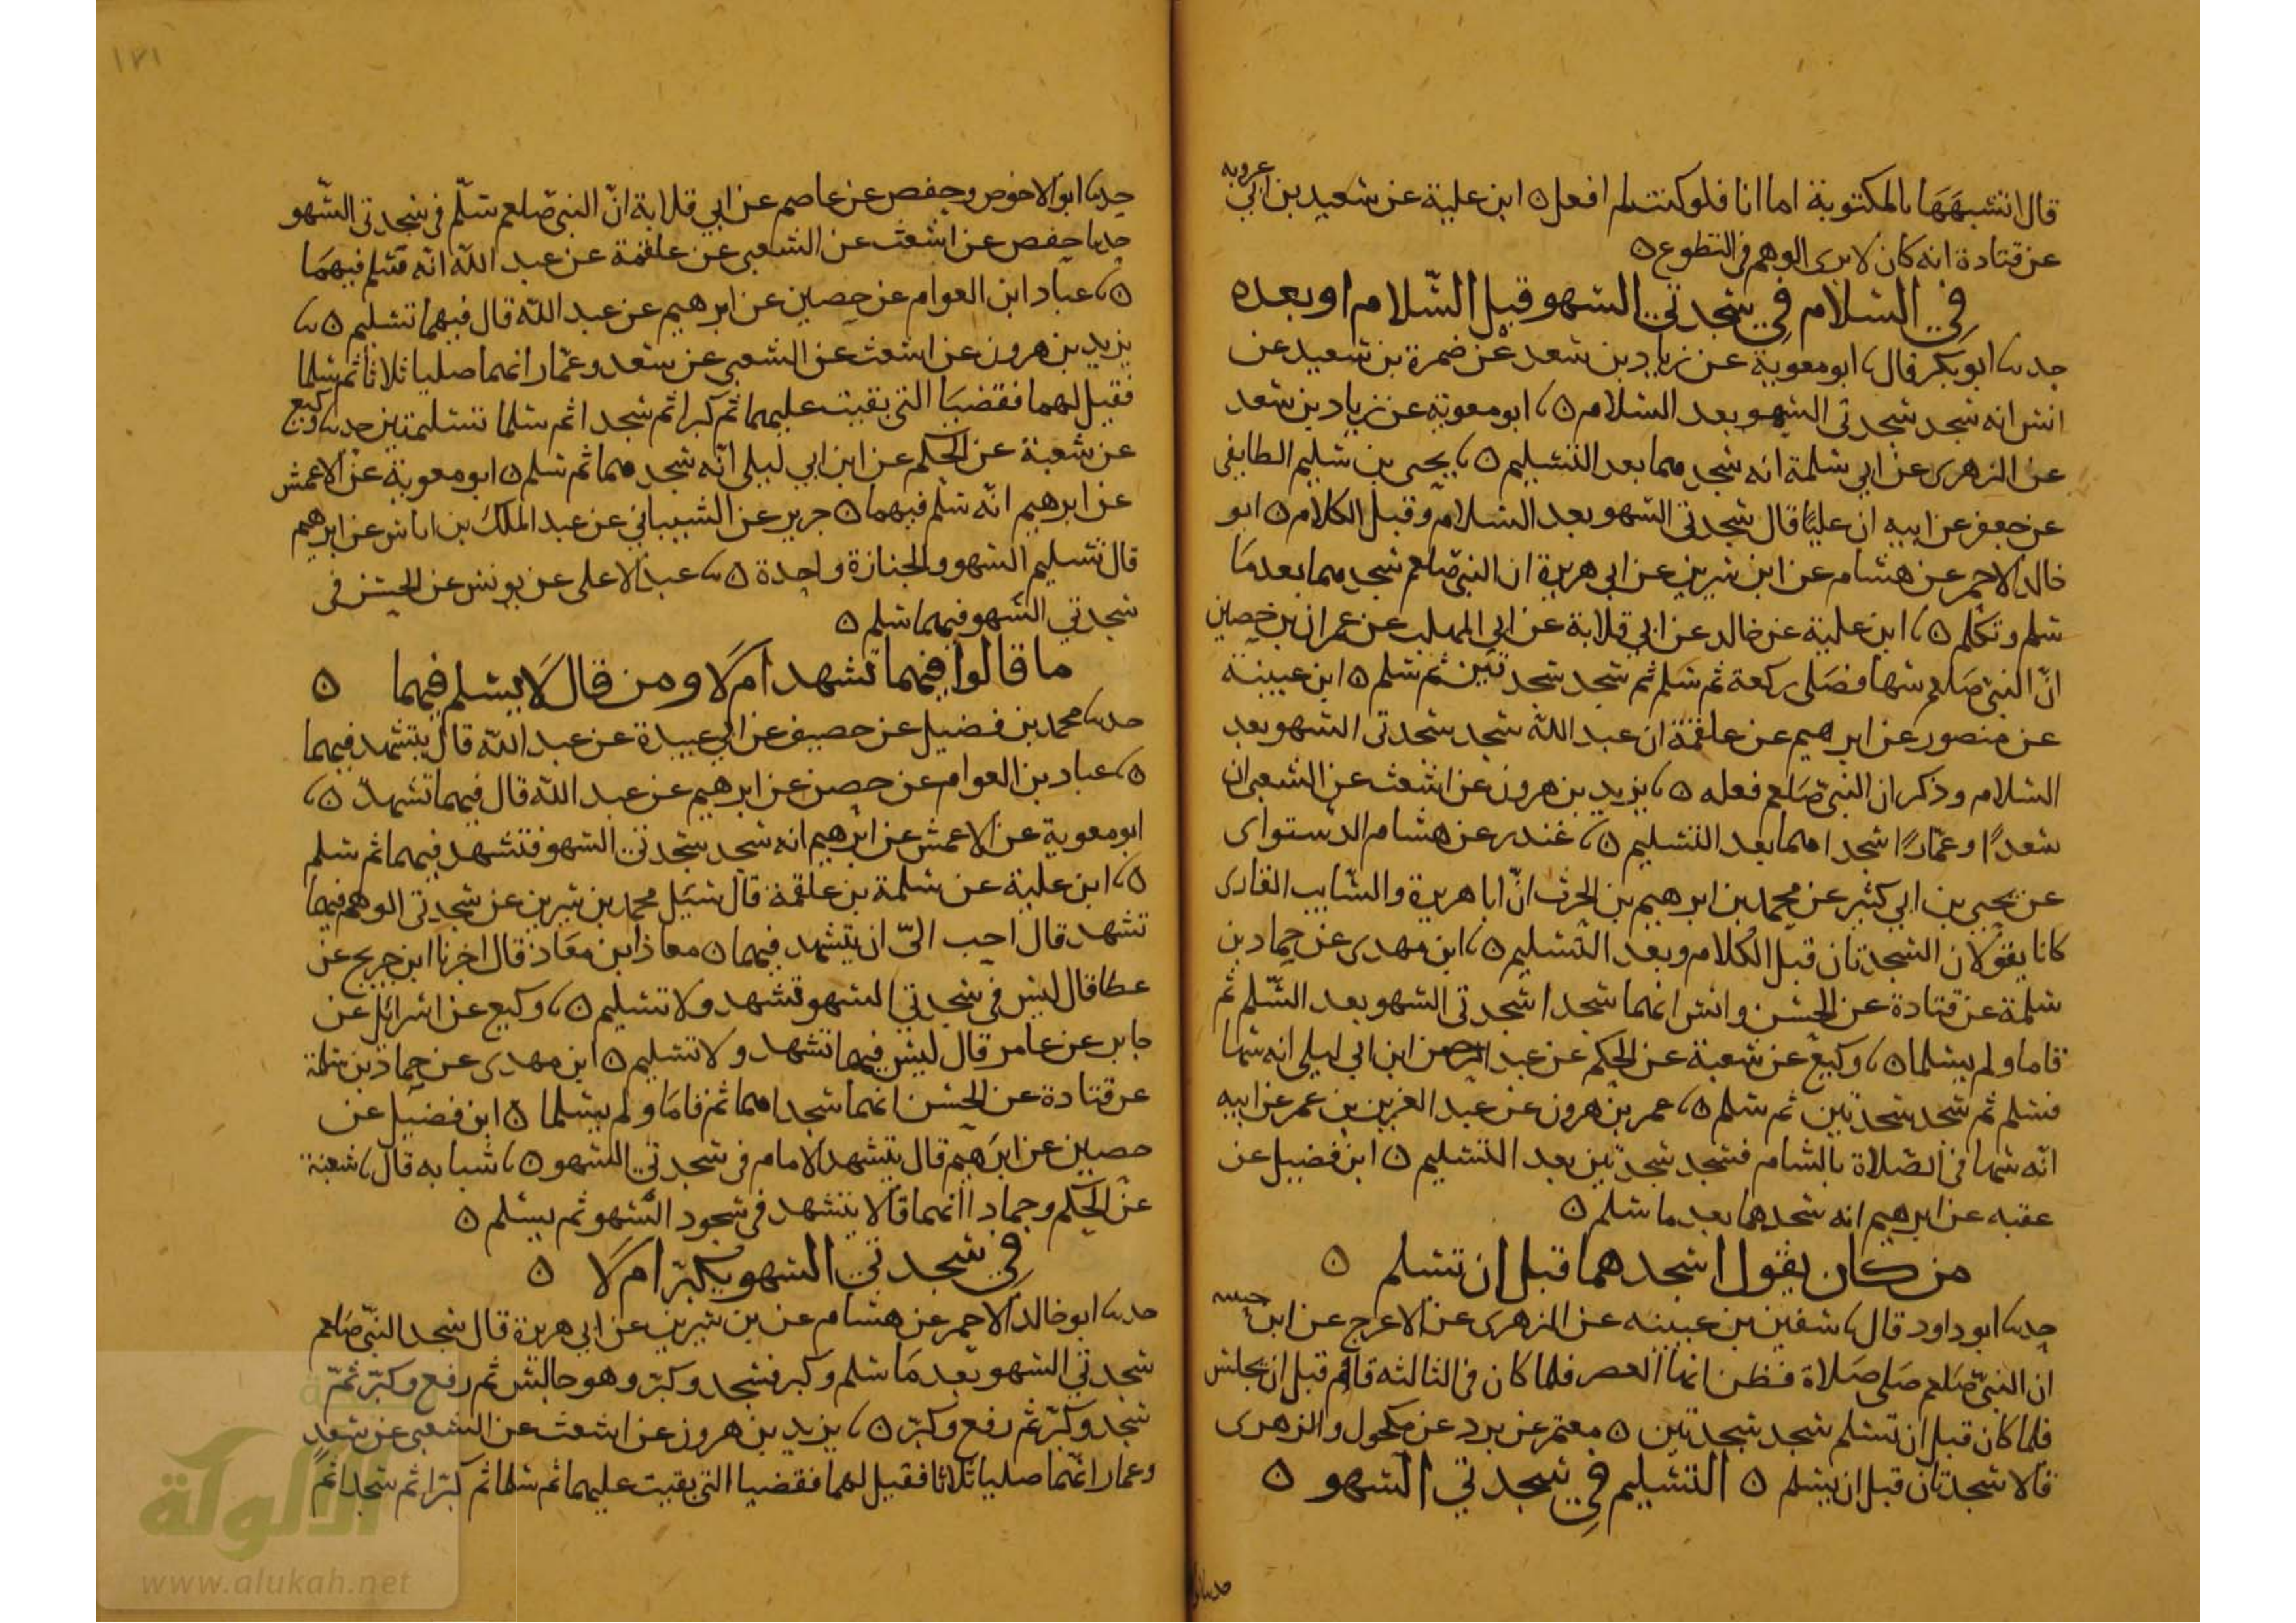 عروبه
قال اتشبهها بالمكتوبة اما انا فلو كنت لم افعل ە ابن علية عن سعيد بن ابي
عن قتادة انه كان لا يرى الوهم في التطوع ە
في السلام في سجدتي السهو قبل السلام او بعده
حدثنا ابو بكر قال نا ابو معوية عن زياد بن سعد عن ضمرة بن سعيد عن
انس انه سجد سجدتي السهو بعد السلام ە نا ابو معوية عن زياد بن سعد
عن الزهرى عن ابي سلمة انه سجدهما بعد التسليم ە نا يحيى بن سليم الطايفى
عن جعفر عن ابيه ان عليا قال سجدتي السهو بعد السلام وقبل الكلام ە ابو
خالد الاحمر عن هشام عن ابن سيرين عن ابي هريرة ان النبي صلعم سجدهما بعد ما
سلم وتكلم ە نا ابن علية عن خالد عن ابي قلابة عن ابي المهلب عن عمران بن حصين
ان النبي صلعم سها فصلى ركعة ثم سلم ثم سجد سجدتين ثم سلم ە ابن عيينة
عن منصور عن ابرهيم عن علقمة ان عبد الله سجد سجدتى السهو بعد
السلام وذكر ان النبي صلعم فعله ە نا يزيد بن هرون عن اشعث عن الشعبي ان
سعدًا وعمارًا سجداهما بعد التسليم ە نا غندر عن هشام الدستواى
عن يحيى بن ابي كثير عن محمد بن ابرهيم بن الحرث انّ ابا هريرة والسايب القارى
كانا يقولان السجدتان قبل الكلام وبعد التسليم ە نا ابن مهدى عن حماد بن
سلمة عن قتادة عن الحسن وانس انهما سجدا سجدتى السهو بعد السلم ثم
قاما ولم يسلما ە نا وكيع عن شعبة عن الحكم عن عبد الرحمن ابن ابي ليلى انه سها
فسلم ثم سجد سجدتين ثم سلم ە نا عمر بن هرون عن عبد العزيز بن عمر عن ابيه
انّه سها في الصلاة بالشام فسجد سجدتين بعد التسليم ە ابن فضيل عن
عقبه عن ابرهيم انه سجدهما بعد ما سلم ە
من كان يقول اسجدهما قبل ان تسلم ە
حدثنا ابو داود قال نا سفين بن عيينه عن الزهرى عن الاعرج عن ابن
ان النبي صلعم صلى صلاة فظن انها العصر فلما كان في الثالثه قام قبل ان يجلس
فلما كان قبل ان تسلم سجد سجدتين ە معتمر عن برد عن مكحول والزهرى
قالا سجدتان قبل ان يسلم ە التسليم في سجدتي السهو ە
١٧١
حدثنا ابو الاحوص وحفص عن عاصم عن ابي قلابة انّ النبي صلعم سلّم في سجدتي السهو
حدثنا حفص عن اشعث عن الشعبي عن علقمة عن عبد الله انّه سلم فيهما
ە نا عباد ابن العوام عن حصين عن ابرهيم عن عبد الله قال فيهما تسليم ە نا
يزيد بن هرون عن اشعث عن الشعبي عن سعد وعمار انهما صليا ثلاثا ثم سلما
فقيل لهما فقضيا التي بقيت عليهما ثم كبرا ثم سجدا ثم سلما تسليمتين حدثنا وكيع
عن شعبة عن الحكم عن ابن ابي ليلى انّه سجدهما ثم سلم ە ابو معوية عن الاعمش
عن ابرهيم انّه سلم فيهما ە جرير عن الشيباني عن عبد الملك بن اياس عن ابرهيم
قال تسليم السهو والجنازة واحدة ە نا عبد الاعلى عن يونس عن الحسن فى
سجدتي السهو فيهما سلم ە
ما قالوا فيهما تشهد ام لا ومن قال لا يسلم فيهما ە
حدثنا محمد بن فضيل عن خصيف عن ابي عبيدة عن عبد الله قال يتشهد فيهما
ە نا عباد بن العوام عن حصين عن ابرهيم عن عبد الله قال فيهما تشهد ە نا
ابو معوية عن الاعمش عن ابرهيم انه سجد سجدتي السهو فتشهد فيهما ثم سلم
ە نا ابن علية عن سلمة بن علقمة قال سئل محمد بن سيرين عن سجدتى الوهم فيهما
تشهد قال احب اليّ ان يتشهد فيهما ە معاذ ابن معاذ قال اخبرنا ابن جريج عن
عطا قال ليس في سجدتي السهو تشهد ولا تسليم ە نا وكيع عن اسرائل عن
جابر عن عامر قال ليس فيهما تشهد ولا تسليم ە ابن مهدى عن حماد بن سلمة
عن قتادة عن الحسن انهما سجداهما ثم قاما ولم يسلما ە ابن فضيل عن
حصين عن ابرهيم قال يتشهد الامام في سجدتي السهو ە نا شبابه قال نا شعبة
عن الحكم وحماد انهما قالا يتشهد في سجود السهو ثم يسلم ە
في سجدتي السهو يكبر ام لا ە
حدثنا ابو خالد الاحمر عن هشام عن بن سيرين عن ابي هريرة قال سجد النبي صلعم
سجدتي السهو بعد ما سلم وكبر فسجد وكبر وهو جالس ثم رفع وكبر ثم
سجد وكبر ثم رفع وكبر ە نا يزيد بن هرون عن اشعث عن الشعبي عن سعد
وعمار انهما صليا ثلاثا فقيل لهما فقضيا التي بقيت عليهما ثم سلما ثم كبرا ثم سجدا ثم
الألوكة
www.alukah.net